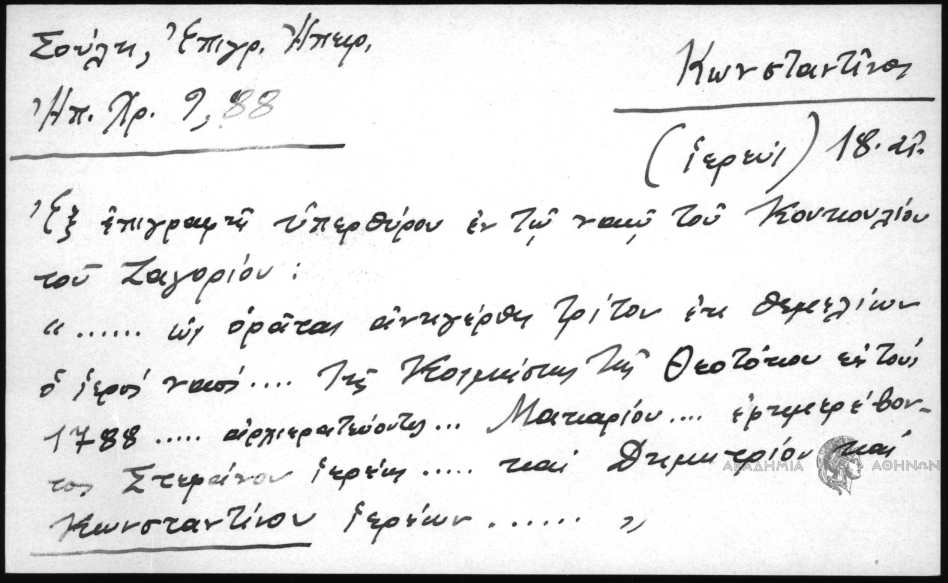 Σούλη, Ἐπιγρ. Ἠπειρ.
Κωνσταντῖνος
Ἠπ. Χρ. 9, 88
(ἱερεύς) 18. αἰ.
Ἐξ ἐπιγραφῆς ὑπερθύρου ἐν τῷ ναῷ τοῦ Κουκουλίου
τοῦ Ζαγορίου :
"...... ὡς ὁρᾶται ἀνηγέρθη τρίτον ἐκ θεμελίων
ὁ ἱερὸς ναὸς .... τῆς Κοιμήσεως τῆς Θεοτόκου ἐν τοὺς
1788 ..... ἀρχιερατεύοντος ... Μακαρίου .... ἐφημερεύον-
τος Στεφάνου ἱερέως ..... καὶ Δημητρίου καὶ
Κωνσταντίνου ἱερέων ...... "
ΑΚΑΔΗΜΙΑ ΑΘΗΝΩΝ